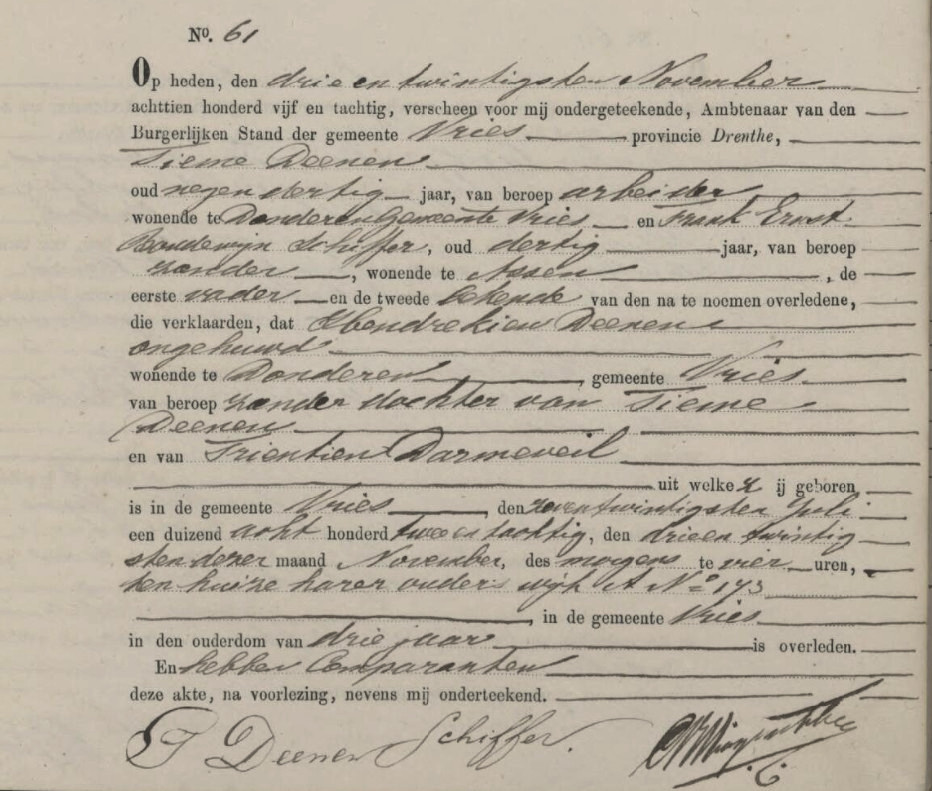 No. 61
Op heden, den drie en twintigsten November
achttien honderd vijf en tachtig, verscheen voor mij ondergeteekende, Ambtenaar van den
Burgerlijken Stand der gemeente Vries provincie Drenthe,
Tieme Deenen
oud negen dertig jaar, van beroep arbeider
wonende te Donderen Gemeente Vries en Frank Ernst
Boudewijn Schiffer, oud dertig jaar, van beroep
zonder, wonende te Assen, de
eerste vader en de tweede bekende van den na te noemen overledene,
die verklaarden, dat Hendrekien Deenen
ongehuwd
wonende te Donderen, gemeente Vries
van beroep zonder dochter van Tieme
Deenen
en van Trientien Darmeveil
uit welke z ij geboren
is in de gemeente Vries, den zeventwintigsten Juli
een duizend acht honderd twee en tachtig, den drieen twintig
sten dezer maand November, des morgens te vier uren,
ten huize harer ouders wijk A No 173
, in de gemeente Vries
in den ouderdom van drie jaar is overleden.
En hebben Comparanten
deze akte, na voorlezing, nevens mij onderteekend.
T Deenen Schiffer.